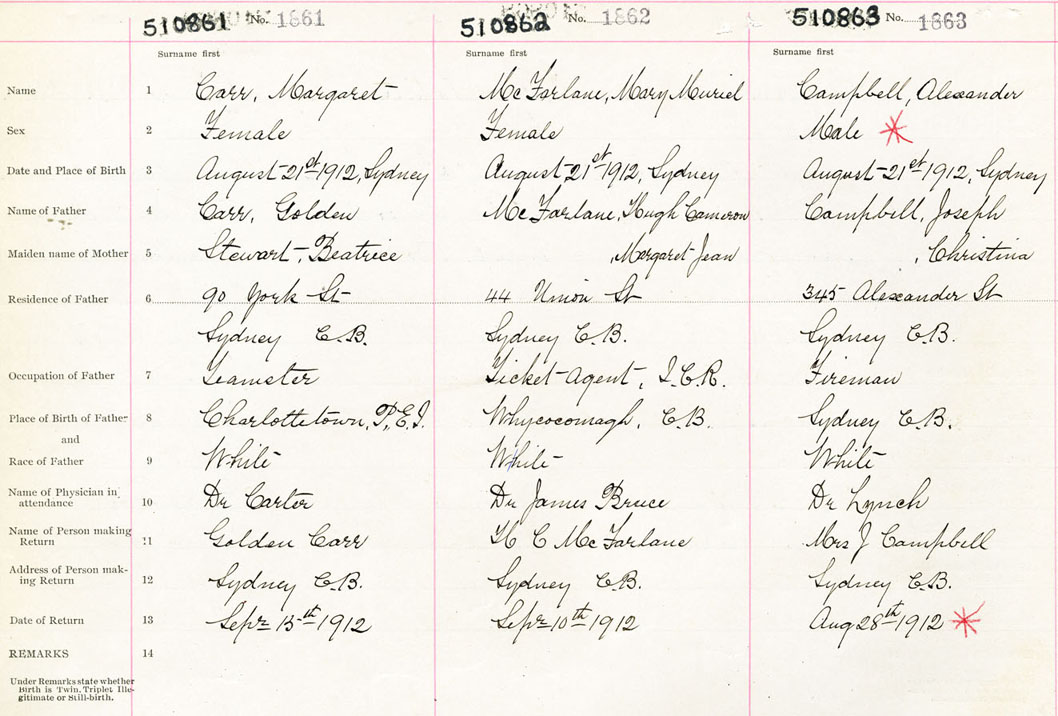 510861 No. 1861 510862 No. 1862 510863 No. 1863
Surname first Surname first Surname first
Name 1 Carr, Margaret McFarlane, Mary Muriel Campbell, Alexander
Sex 2 Female Female Male *
Date and Place of Birth 3 August 21st 1912, Sydney August 21st 1912, Sydney August 21st 1912, Sydney
Name of Father 4 Carr, Golden McFarlane, Hugh Cameron Campbell, Joseph
Maiden name of Mother 5 Stewart, Beatrice , Margaret Jean , Christina
Residence of Father 6 90 York St 44 Union St 345 Alexander St
Sydney C.B. Sydney C.B. Sydney C.B.
Occupation of Father 7 Teamster Ticket Agent, I.C.R. Fireman
Place of Birth of Father 8 Charlottetown, P.E.I. Whycocomagh, C.B. Sydney C.B.
and
Race of Father 9 White White White
Name of Physician in attendance 10 Dr Carter Dr James Bruce Dr Lynch
Name of Person making Return 11 Golden Carr H C McFarlane Mrs J Campbell
Address of Person mak-ing Return 12 Sydney C.B. Sydney C.B. Sydney C.B.
Date of Return 13 Sept 13th 1912 Sept 10th 1912 Aug 28th 1912 *
REMARKS 14
Under Remarks state whether
Birth is Twin, Triplet Ille-
gitimate or Still-birth.